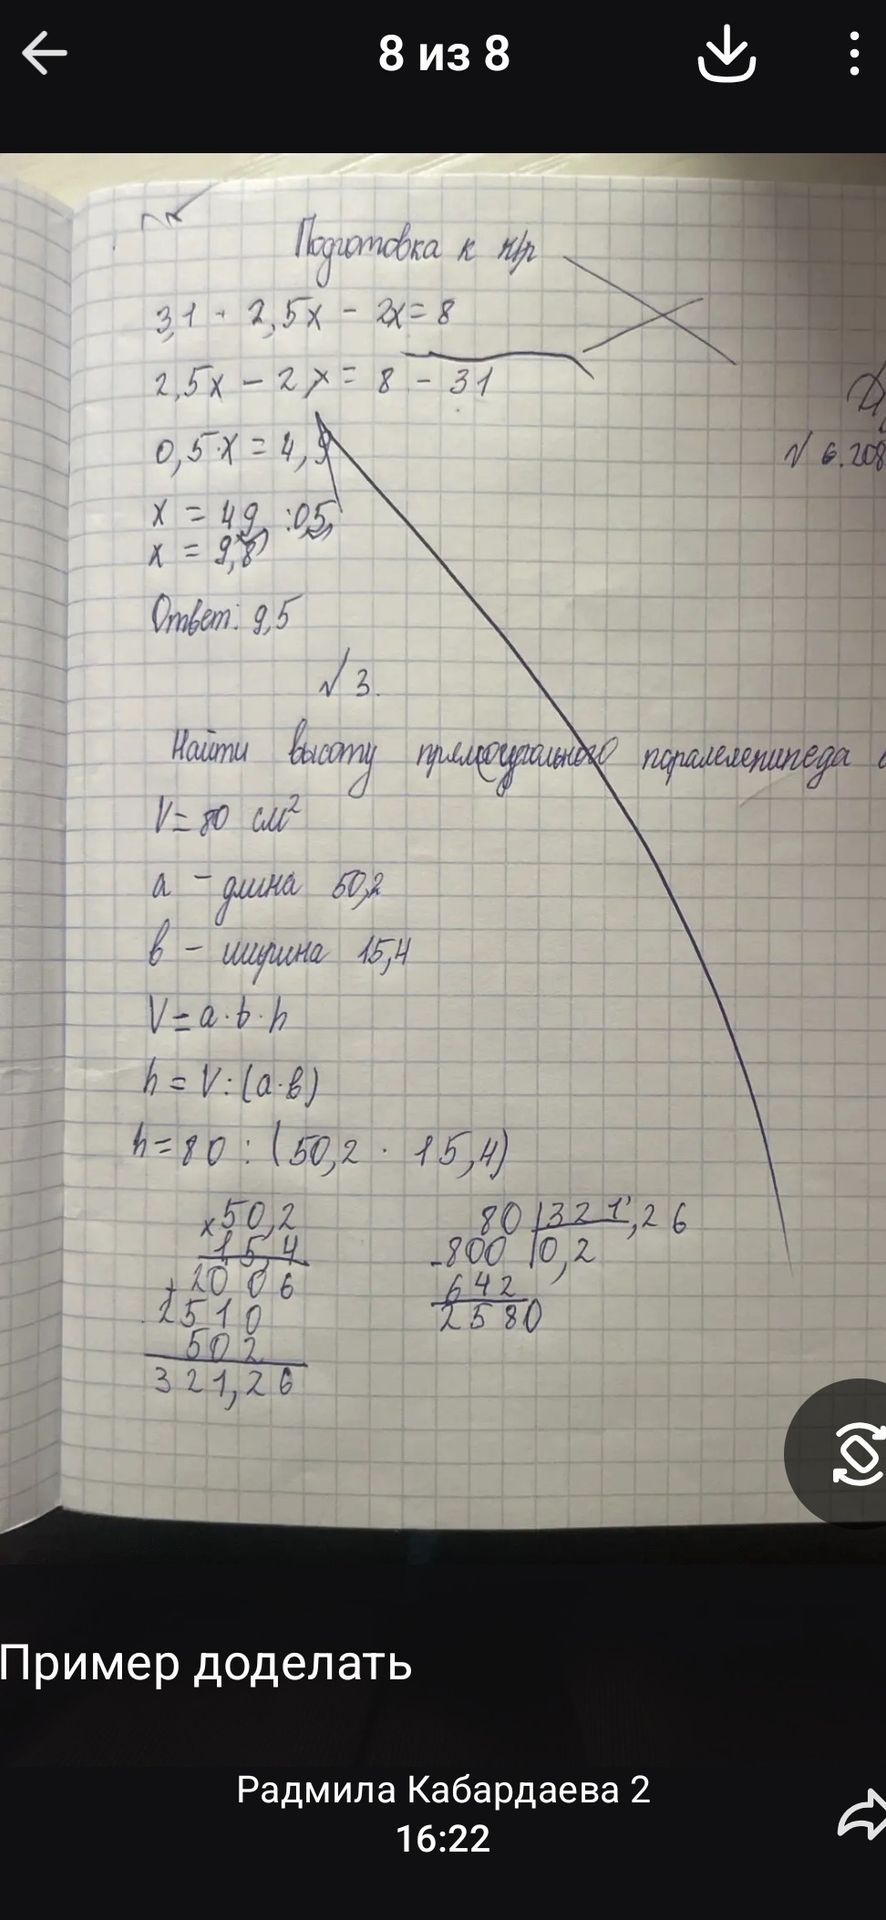 8 из 8
Подготовка к к/р
3,1 + 2,5x - 2x = 8
2,5x - 2x = 8 - 3,1
0,5·x = 4,9
x = 4,9 : 0,5
x = 9,8
Ответ: 9,5
№ 6.208
√ 3.
Найти высоту прямоугольного паралелепипеда
V = 80 см²
a - длина 50,2
в - ширина 15,4
V = a·b·h
h = V:(a·в)
h = 80 : (50,2 · 15,4)
×50,2
15,4
+2006
2510
502
321,26
80 321,26
-800 0,2
642
2580
Пример доделать
Радмила Кабардаева 2
16:22